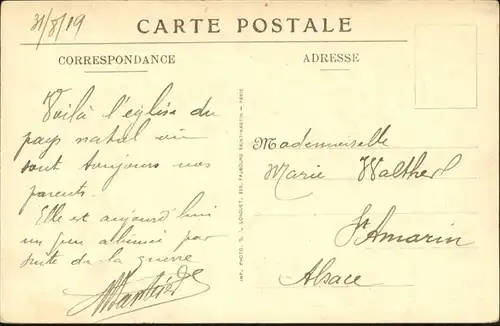 31/8/19
CARTE POSTALE
CORRESPONDANCE
ADRESSE
Voilà l'eglise du
pays natal où
sont toujours nos
parents.
Elle est aujourd'hui
un peu abimée par
suite de la guerre
IMP. PHOTO. L. LONGUET, 250, FAUBOURG SAINT-MARTIN - PARIS
Mademoiselle
Marie Walther
St Amarin
Alsace